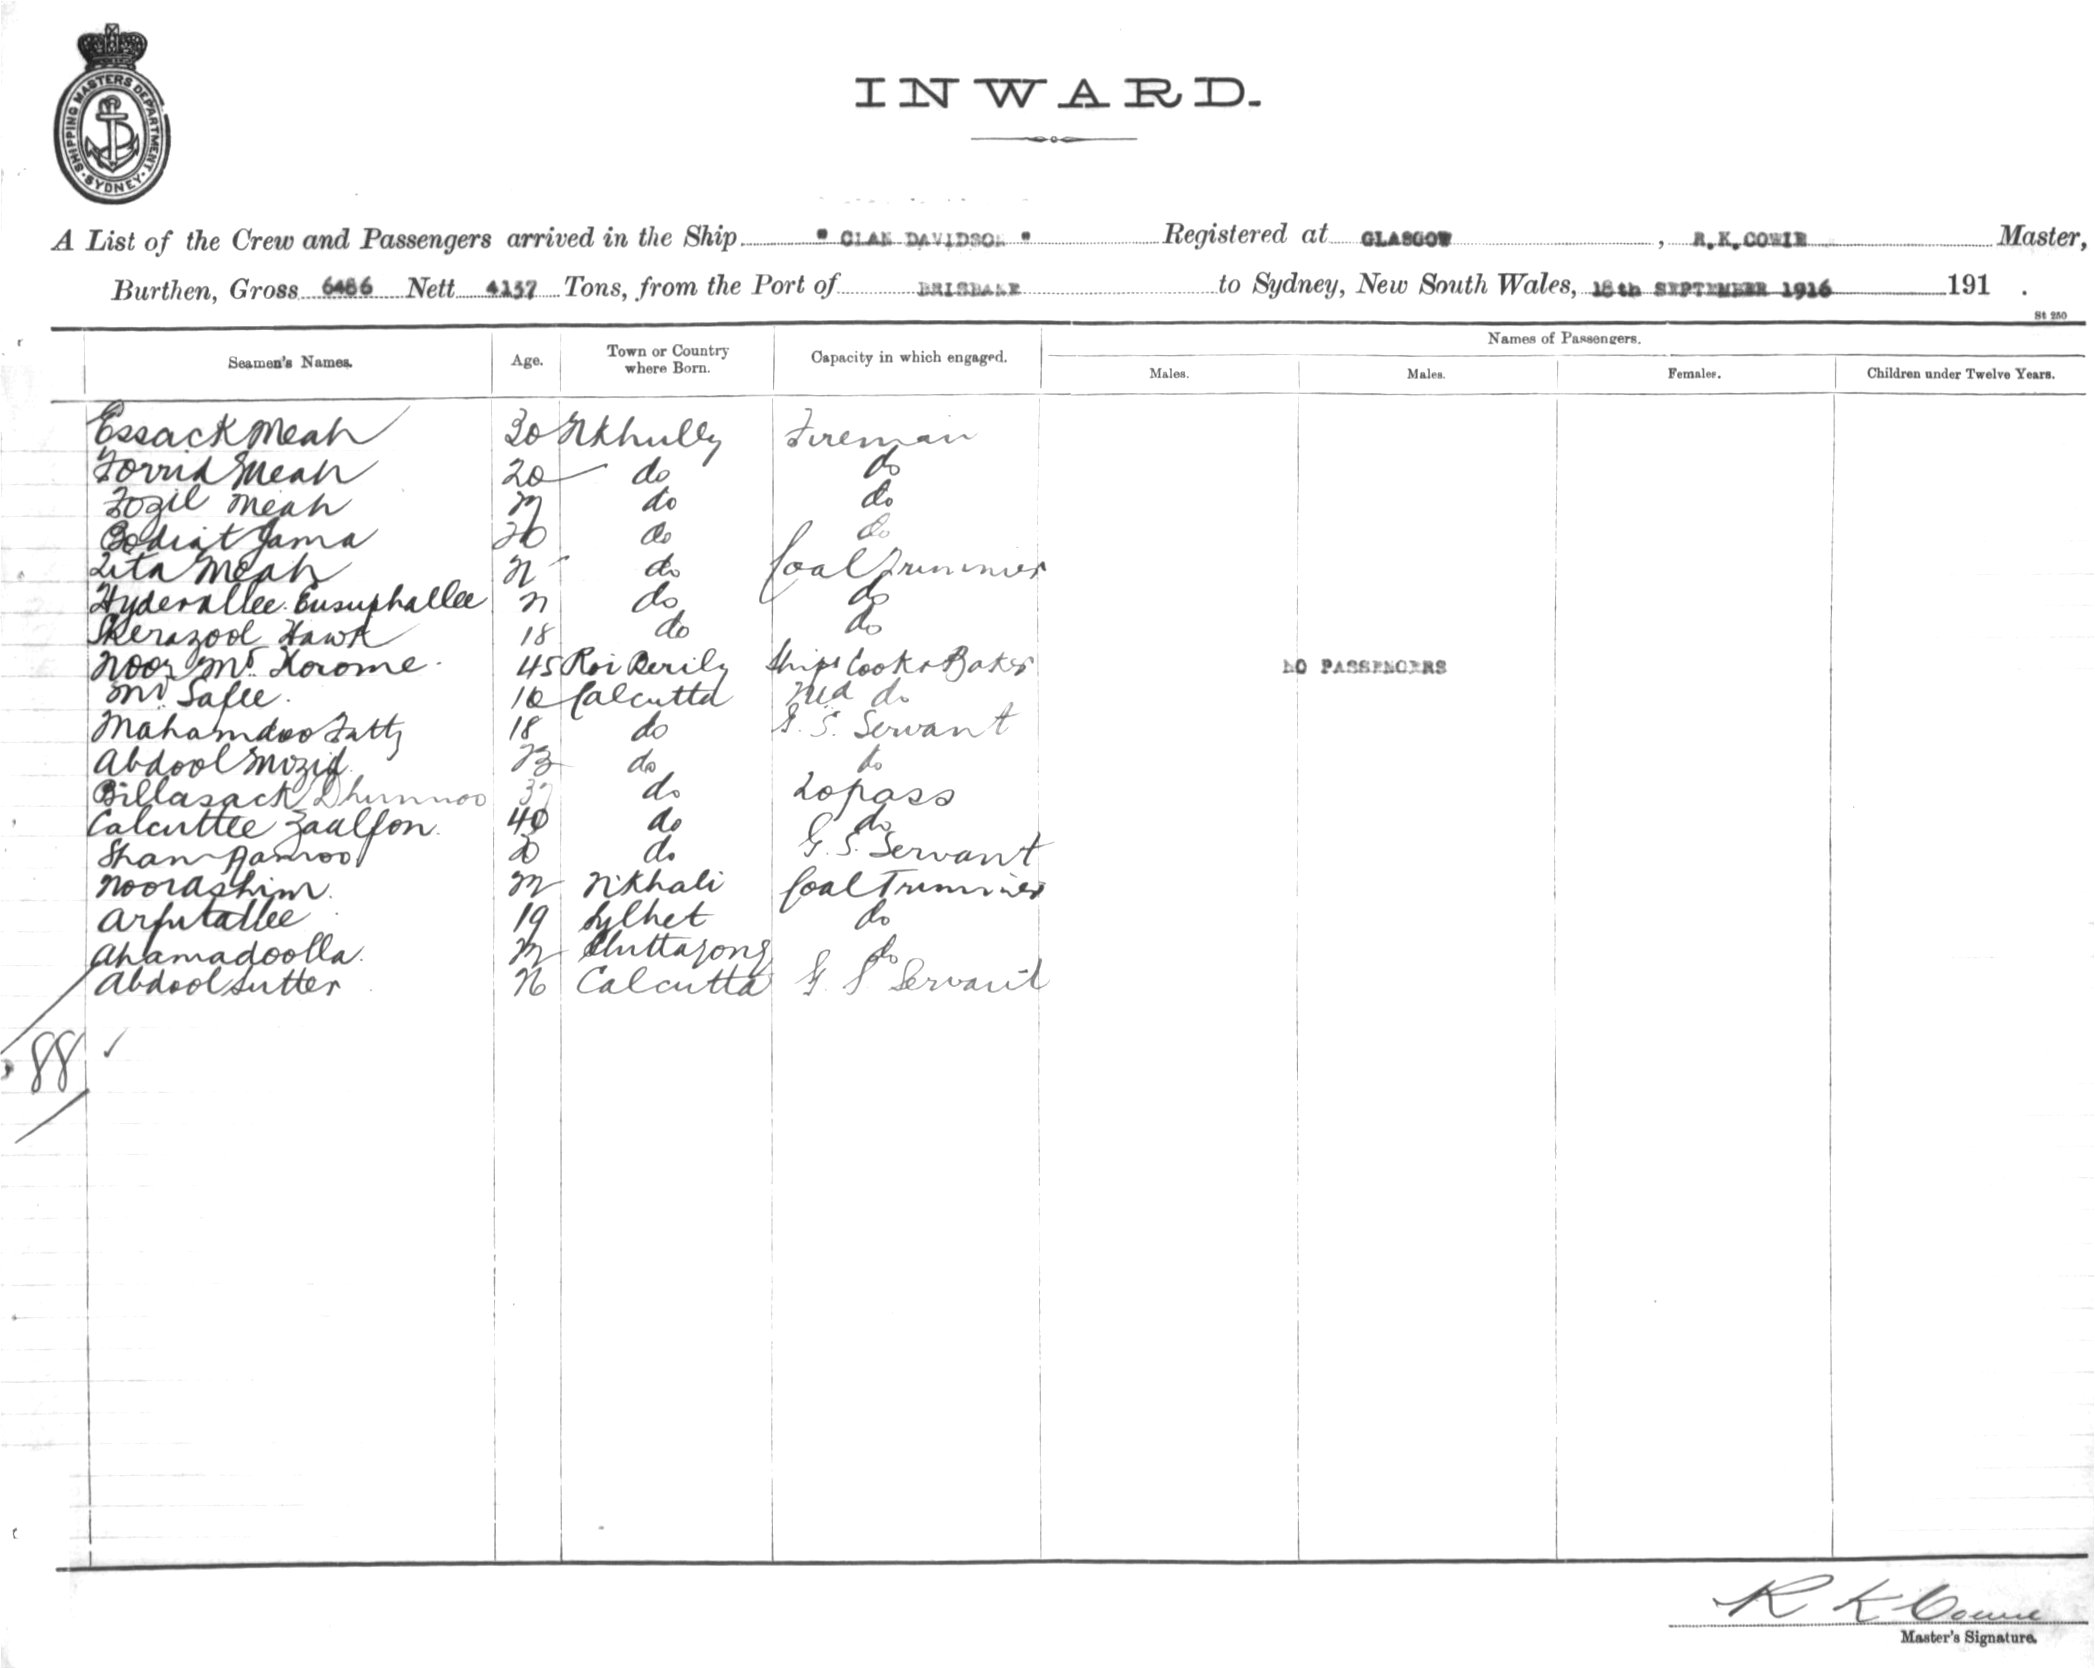 SHIPPING MASTERS DEPARTMENT. SYDNEY.
INWARD.
A List of the Crew and Passengers arrived in the Ship " CLAN DAVIDSON " Registered at GLASGOW, R.K.COWIE Master,
Burthen, Gross 6486 Nett 4137 Tons, from the Port of BRISBANE to Sydney, New South Wales, 18th SEPTEMBER 1916 191 .
St 250
Seamen's Names. Age. Town or Country where Born. Capacity in which engaged. Names of Passengers.
Males. Males. Females. Children under Twelve Years.
Essack Meah 30 Nkhully Fireman
Forrid Meah 20 do do
Fozil Meah do do
Bodiat Jama do do
Zita Meah do Coal Trimmer
Hyderallee Eusuphallee do do
Sherazool Hawk 18 do do
Noor Md. Korome 45 Ships Cook & Baker NO PASSENGERS
Md. Safee Calcutta
Mahamdoo 18 do G. S. Servant
Abdool Mozid do do
Billasack Dhunnoo do Topass
Calcuttee Zaalfon 40 do do
Sham 20 do G. S. Servant
Noorashim N'Khali Coal Trimmer
Arfutallee 19 Sylhet do
Ahamadoolla Chittagong do
Abdool Sutter Calcutta G. S Servant
88
R K Cowie
Master's Signature.